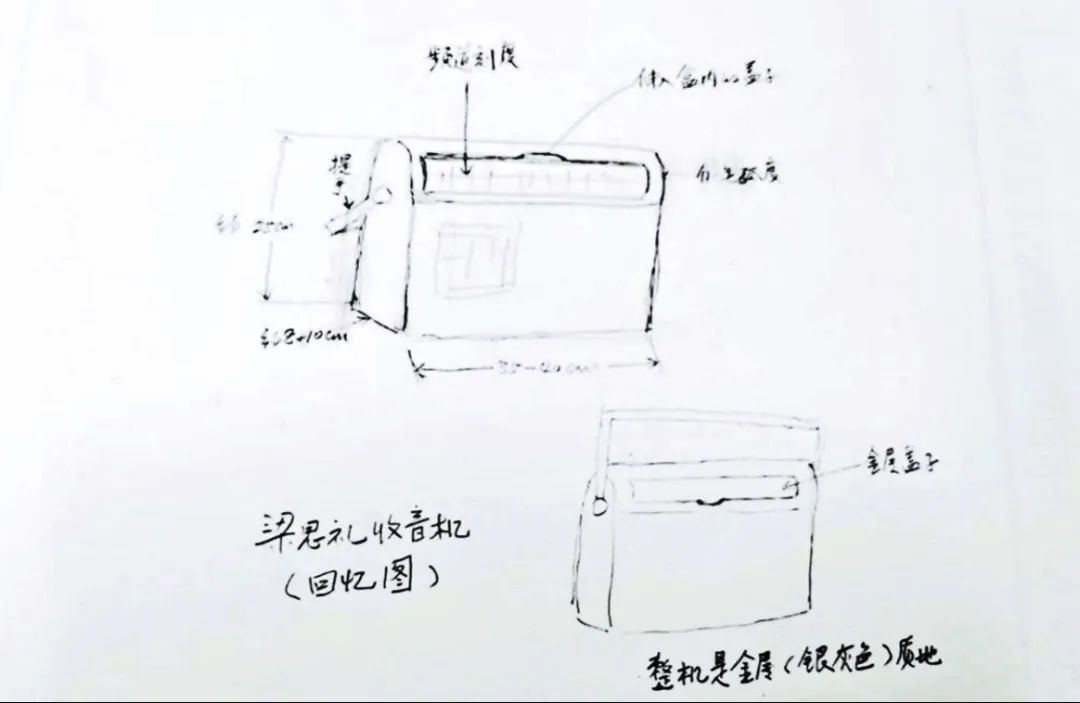 频道刻度
伸入盒内的盖子
提手
有点弧度
约 25cm
约8-10cm
35-40cm
金属盖子
梁思礼收音机
(回忆图)
整机是金属(银灰色)质地